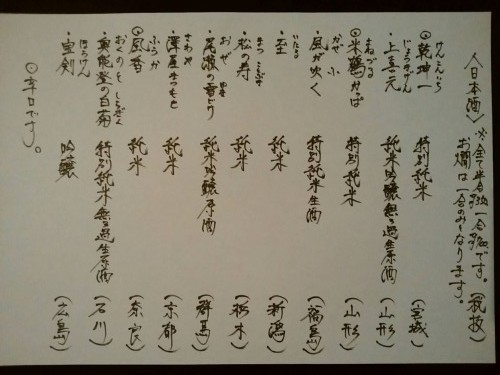 〈日本酒〉
※全て半合 一合 です。(税抜)
お燗は一合のみとなります。
けんこんいち
◎乾坤一 特別純米 (宮城)
じょうきげん
・上喜元 純米吟醸無ろ過生原酒 (山形)
よねつる
◎米鶴かっぱ 特別純米 (山形)
かぜ ふ
・風が吹く 特別純米生酒 (福島)
いたる
・至 純米 (新潟)
まつ ことぶき
・松の寿 純米 (栃木)
おぜ
・尾瀬の雪どけ 純米吟醸原酒 (群馬)
さわや
・澤屋まつもと 純米 (京都)
ふうか
◎風香 純米 (奈良)
おくのと しらぎく
・奥能登の白菊 特別純米無ろ過生原酒 (石川)
ほうけん
・宝剣 吟醸 (広島)
◎辛口です。